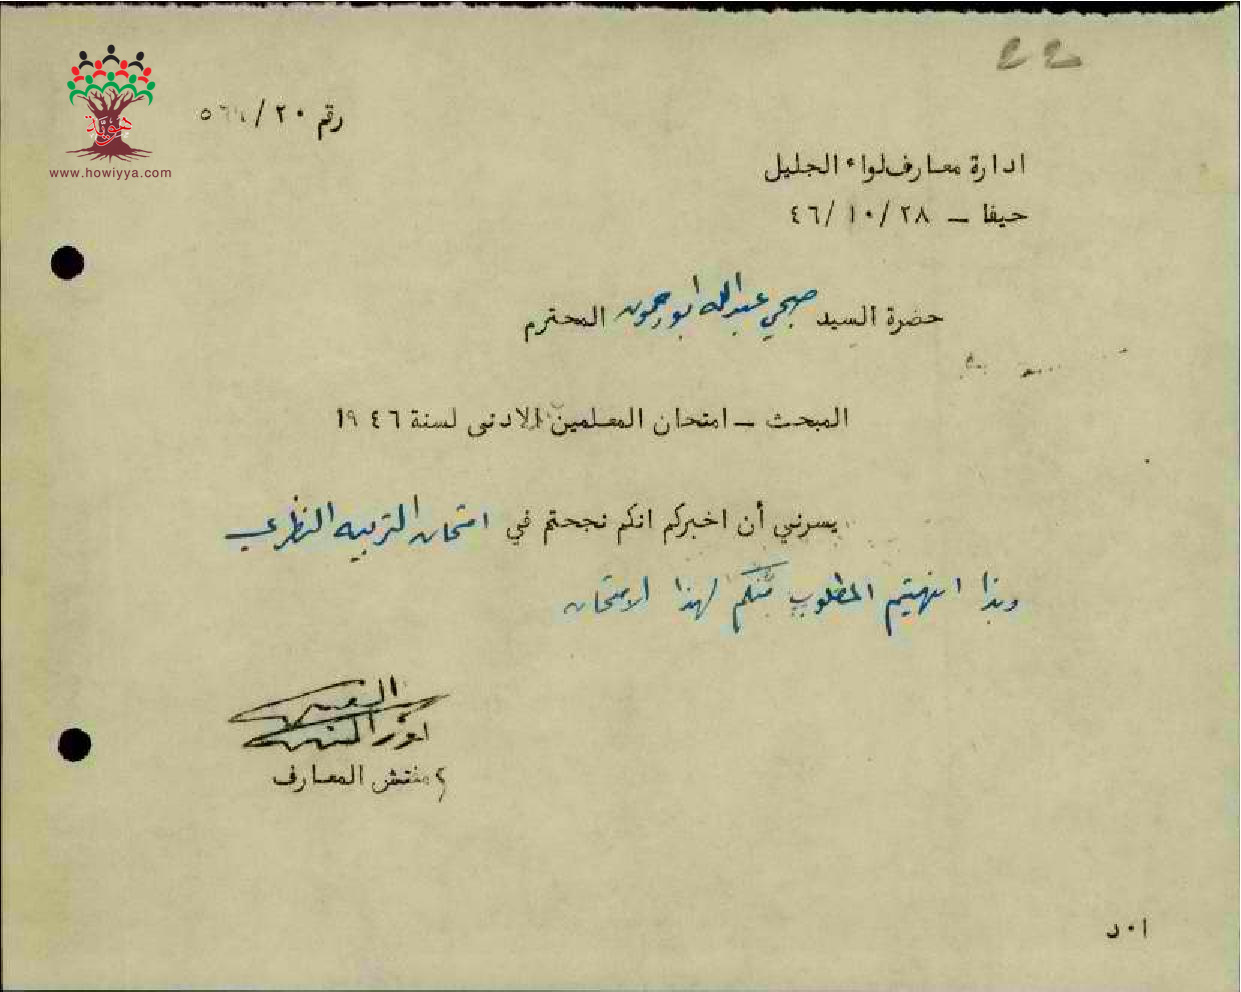 22
رقم ٢٠/
www.howiyya.com
ادارة معارف لواء الجليل
حيفا – ٢٨/١٠/٤٦
حضرة السيد صبحي عبدالله ابو رحمون المحترم
المبحث – امتحان المعلمين الادنى لسنة ١٩٤٦
يسرني أن اخبركم انكم نجحتم في امتحان التربيه النظري
وبذا انهيتم المطلوب منكم لهذا الامتحان
مفتش المعارف
ا٠د